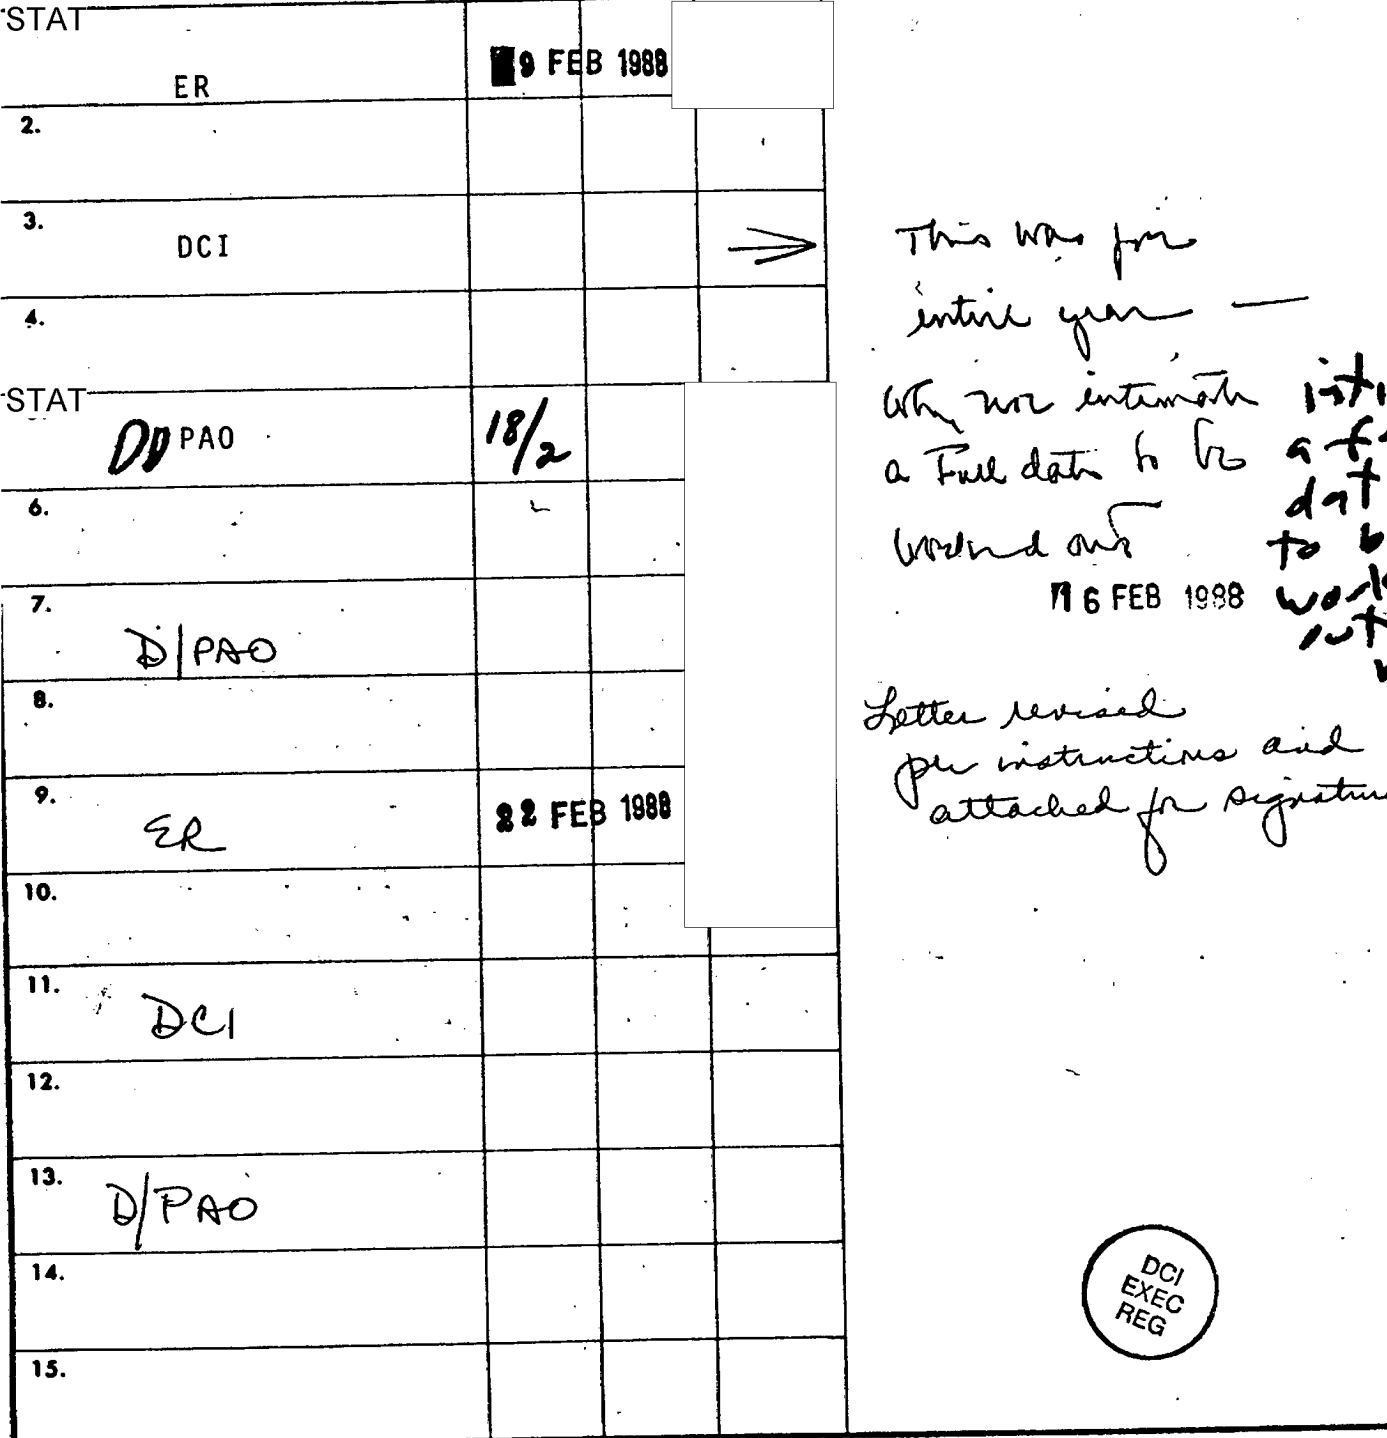 STAT
ER
9 FEB 1988
2.
3.
DCI
4.
STAT
DD PAO
18/2
6.
7.
D/PAO
8.
9.
ER
22 FEB 1988
10.
11.
DCI
12.
13.
D/PAO
14.
15.
This was for
entire year —
Why not intimate
a Full date to be
worked out
16 FEB 1988
a
to
Letter revised
per instructions and
attached for
DCI
EXEC
REG